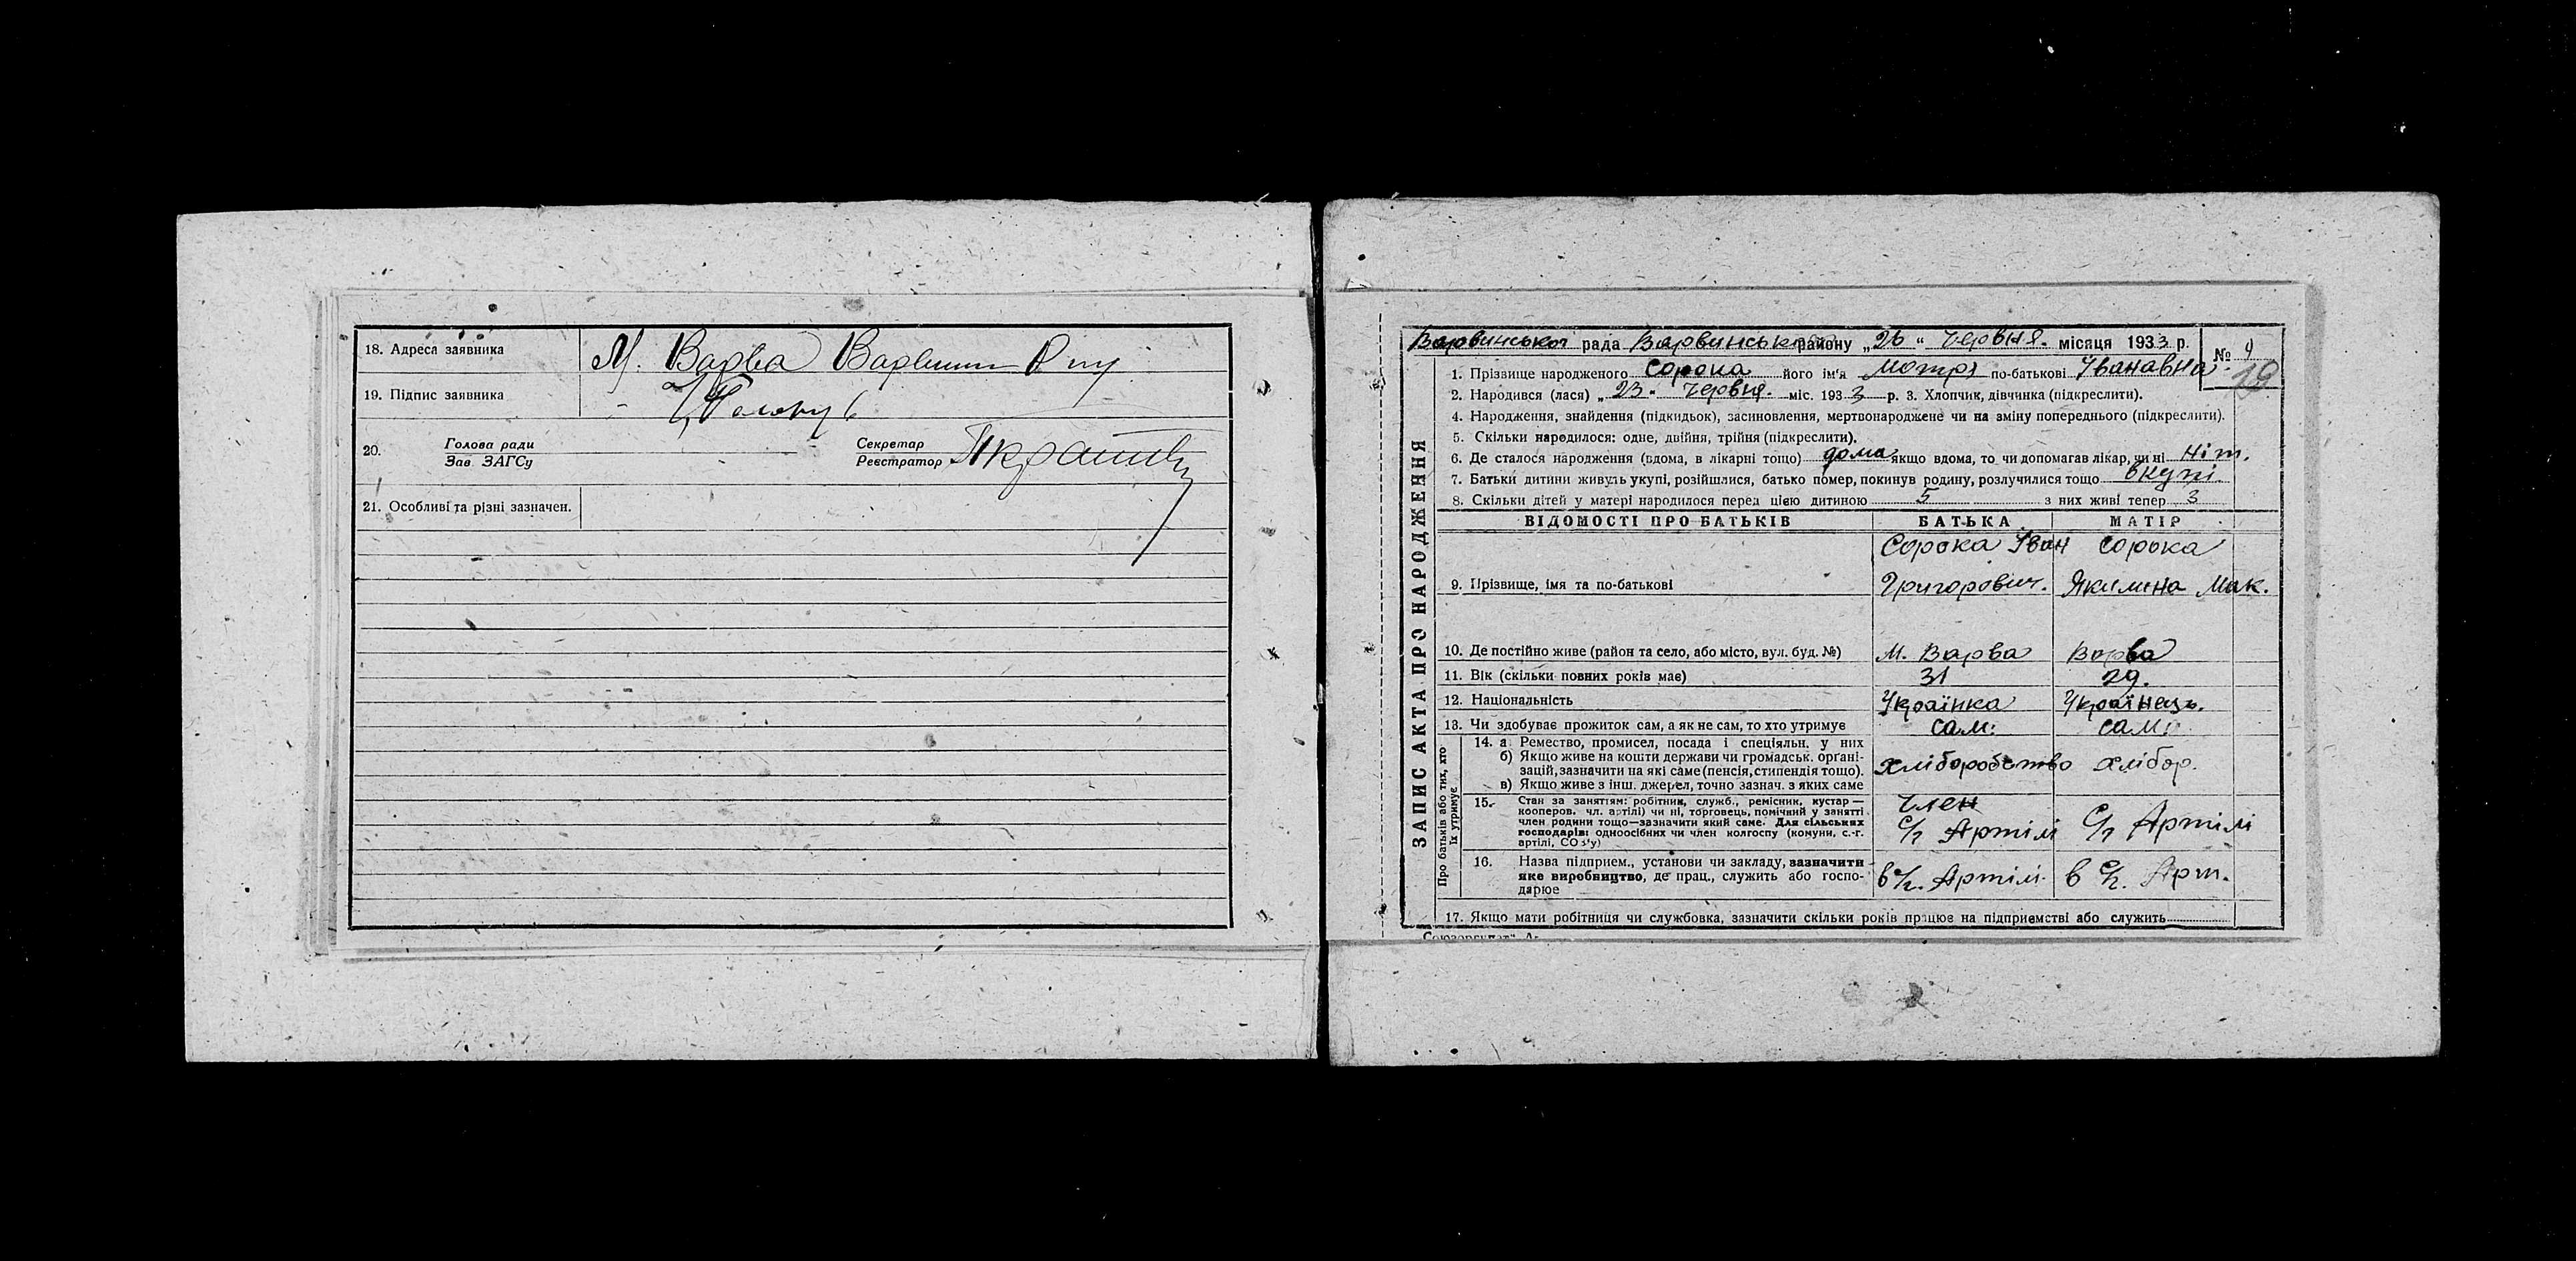 18. Адреса заявника М. Варва
19. Підпис заявника
20. Голова ради
Зав. ЗАГСу
Секретар
Реєстратор
21. Особливі та різні зазначен.
ЗАПИС АКТА ПРО НАРОДЖЕННЯ
Варвинської рада Варвинського району „26“ червня. місяця 1933 р. № 9
19
1. Прізвище народженого Сорока його ім'я Мотря по-батькові Іванавна
2. Народився (лася) „23“ червня. міс. 1933 р. 3. Хлопчик, дівчинка (підкреслити).
4. Народження, знайдення (підкидьок), засиновлення, мертвонароджене чи на зміну попереднього (підкреслити).
5. Скільки народилося: одне, двійня, трійня (підкреслити).
6. Де сталося народження (вдома, в лікарні тощо) дома якщо вдома, то чи допомагав лікар, чи ні ніт.
7. Батьки дитини живуть укупі, розійшлися, батько помер, покинув родину, розлучилися тощо вкупі.
8. Скільки дітей у матері народилося перед цією дитиною 5 з них живі тепер 3
ВІДОМОСТІ ПРО БАТЬКІВ БАТЬКА МАТІР
Сорока Іван Сорока
9. Прізвище, імя та по-батькові Григорович. Якилина Мак.
10. Де постійно живе (район та село, або місто, вул. буд. №) М. Варва Варва
11. Вік (скільки повних років має) 31 29.
12. Національність Українка Українець.
13. Чи здобуває прожиток сам, а як не сам, то хто утримує сам: сам:
Про батьків або тих, хто
їх утримує
14. а Ремество, промисел, посада і спеціяльн. у них
б) Якщо живе на кошти держави чи громадськ. органі-
зацій, зазначити на які саме (пенсія, стипендія тощо). хліборобство хлібор.
в) Якщо живе з інш. джерел, точно зазнач. з яких саме
15. Стан за заняттям: робітник, служб., ремісник, кустар— член
кооперов. чл. артілі) чи ні, торговець, помічний у занятті
член родини тощо—зазначити який саме. Для сільських С/г Артілі С/г Артілі
господарів: одноосібних чи член колгоспу (комуни, с.-г.
артілі, СОЗ'у)
16. Назва підприєм., установи чи закладу, зазначити
яке виробництво, де прац., служить або госпо- в С/г. Артілі. в С/г. Арт.
дарює
17. Якщо мати робітниця чи службовка, зазначити скільки років працює на підприємстві або служить